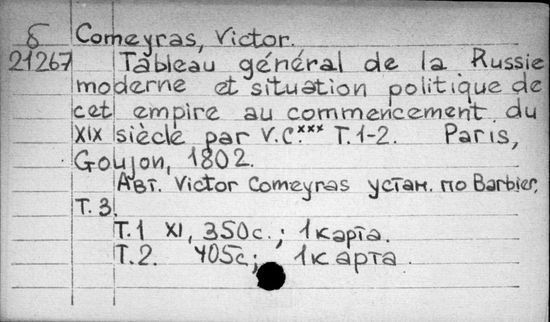 б Comeyras, Victor.
21267 Tableau général de la Russie
moderne et situation politique de
cet empire au commencement du
XIX siècle par V.C.*** T.1-2. Paris,
Goujon, 1802.
Авт. Victor Comeyras устан. по Barbier,
T.3.
T.1 XI, 350с.; 1 карта.
T.2. 405с; 1 карта.